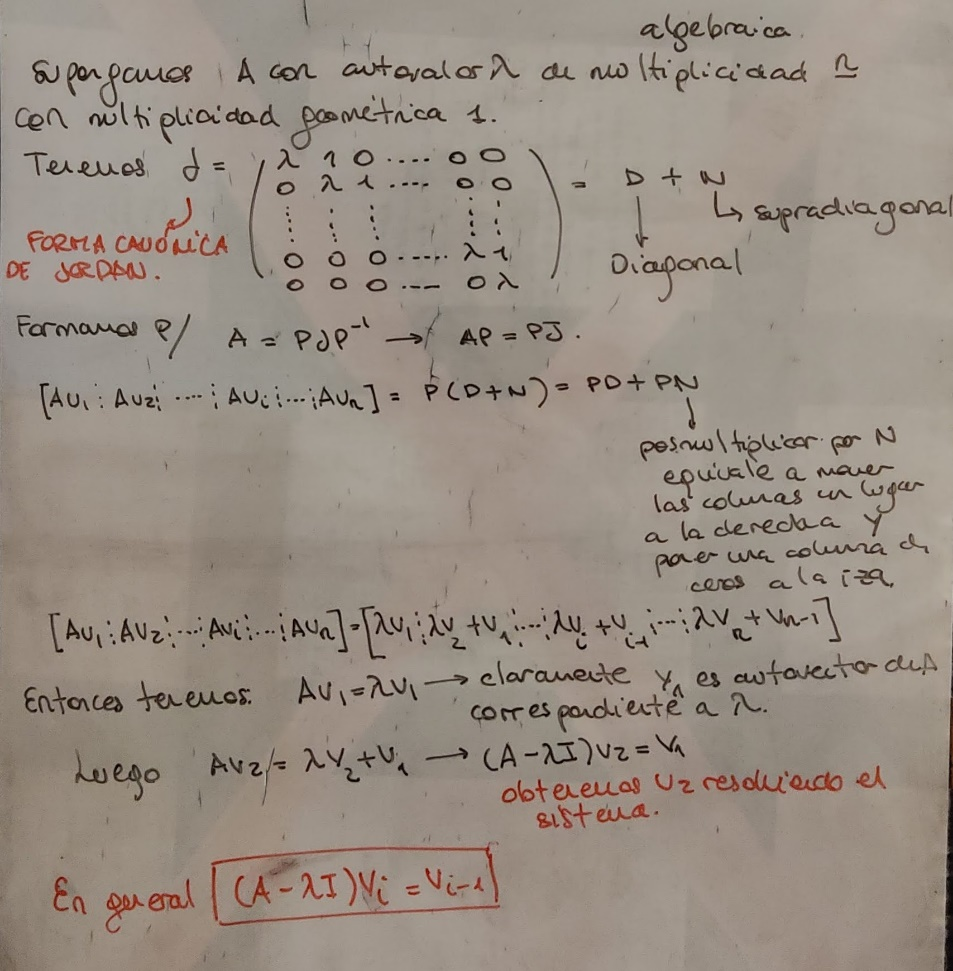 algebraica.
Supongamos A con autovalor λ de multiplicidad n
con multiplicidad geométrica 1.
Tenemos J = ( λ 1 0 .... 0 0
0 λ 1 .... 0 0
0 0 0 ..... λ 1
0 0 0 .... 0 λ ) = D + N
↳ supradiagonal
Diagonal
FORMA CANÓNICA
DE JORDAN.
Formamos P/ A = PJP⁻¹ → AP = PJ.
[Av₁ ⋮ Av₂ ⋮ .... ⋮ Avᵢ ⋮ ... ⋮ Avₙ] = P(D+N) = PD + PN
posmultiplicar por N
equivale a mover
las columnas un lugar
a la derecha y
poner una columna de
ceros a la izq.
[Av₁ ⋮ Av₂ ⋮ ... ⋮ Avᵢ ⋮ ... ⋮ Avₙ] = [λv₁ ⋮ λv₂ + v₁ ⋮ ... ⋮ λvᵢ + vᵢ₋₁ ⋮ ... ⋮ λvₙ + vₙ₋₁]
Entonces tenemos: Av₁ = λv₁ → claramente v₁ es autovector de A
correspondiente a λ.
Luego Av₂ = λv₂ + v₁ → (A - λI)v₂ = v₁
obtenemos v₂ resolviendo el
sistema.
En general (A - λI)vᵢ = vᵢ₋₁